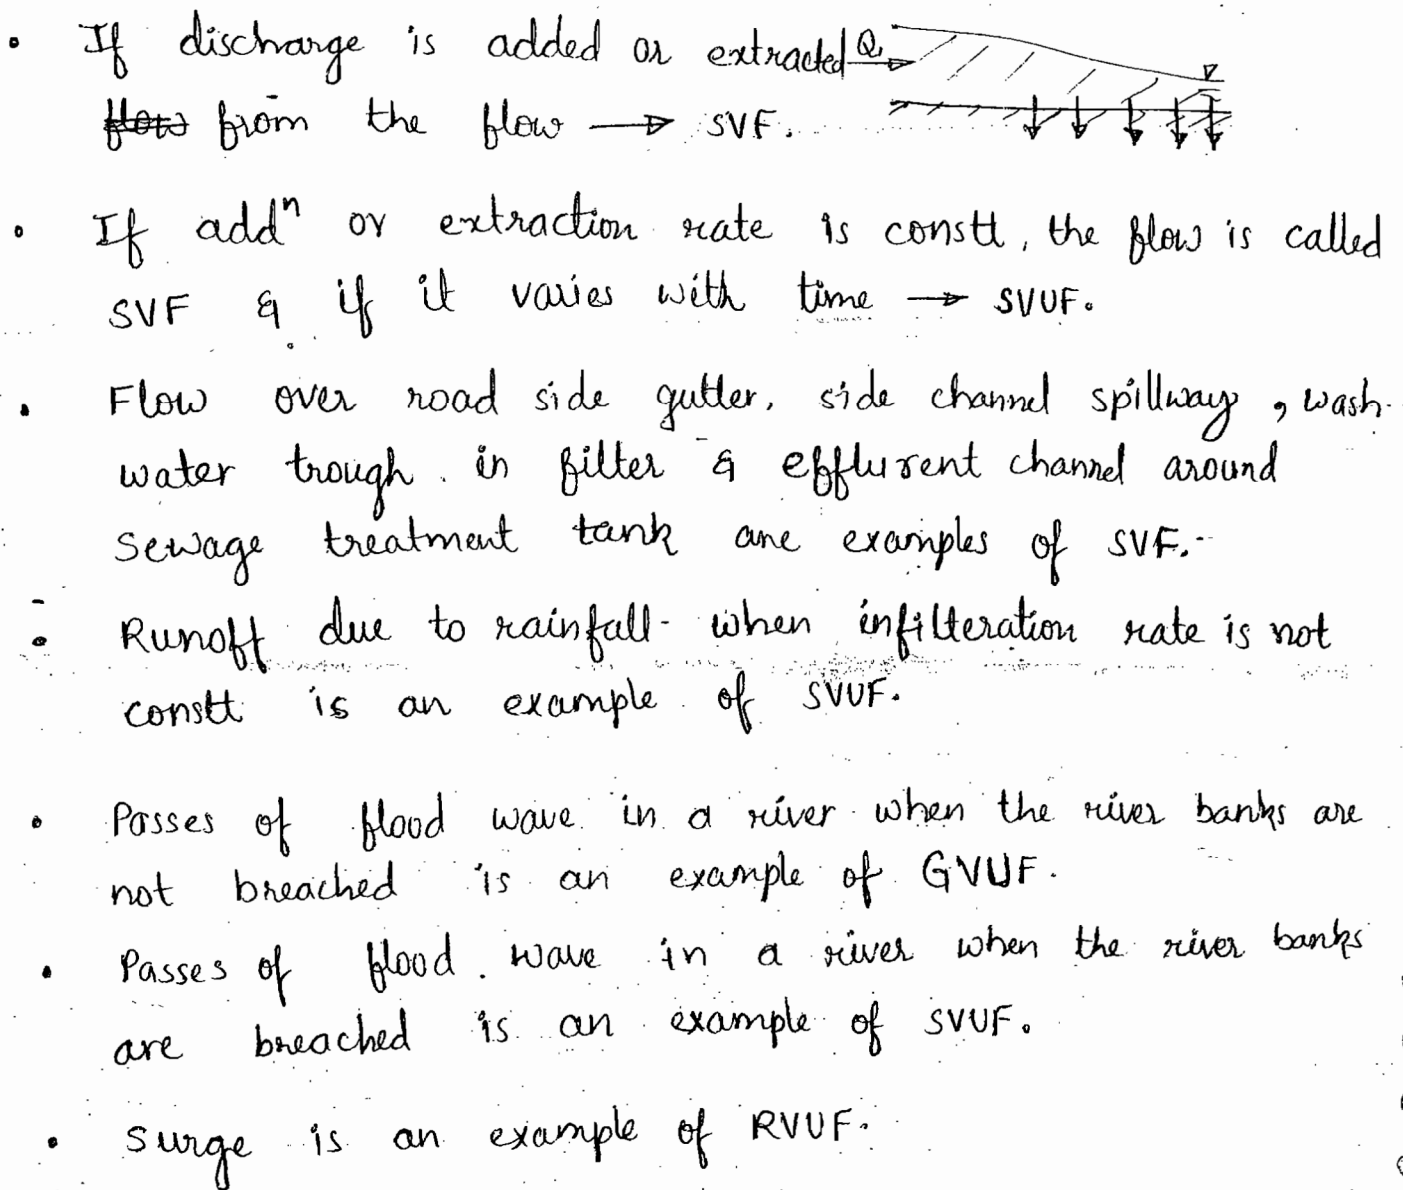 • If discharge is added or extracted Q₁
flow from the flow → SVF.
• If addⁿ or extraction rate is constt, the flow is called
SVF & if it varies with time → SVUF.
• Flow over road side gutter, side channel spillway, wash
water trough in filter & efflurent channel around
sewage treatment tank are examples of SVF.
• Runoff due to rainfall when infilteration rate is not
constt is an example of SVUF.
• Passes of flood wave in a river when the river banks are
not breached is an example of GVUF.
• Passes of flood wave in a river when the river banks
are breached is an example of SVUF.
• Surge is an example of RVUF.